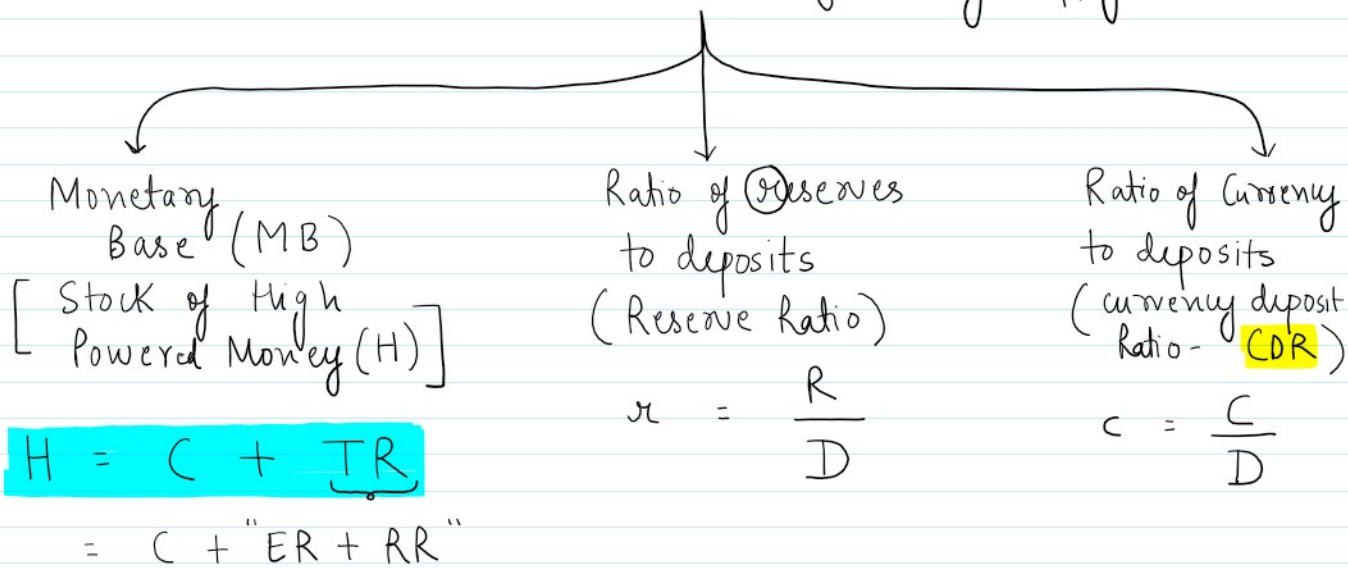 Monetary
Base (MB)
[ Stock of High
Powered Money (H) ]
H = C + TR
= C + "ER + RR"
Ratio of Reserves
to deposits
( Reserve Ratio )
r = R / D
Ratio of Currency
to deposits
( currency deposit
Ratio - CDR )
c = C / D